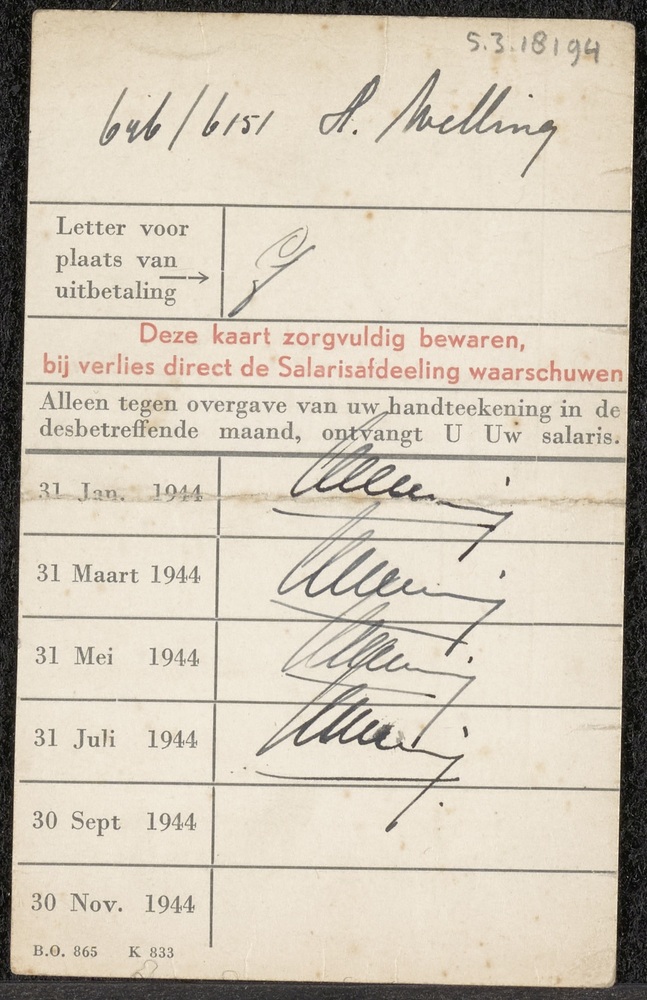 5.3.18194
646/6151 H. Welling
Letter voor
plaats van
uitbetaling →
Deze kaart zorgvuldig bewaren,
bij verlies direct de Salarisafdeeling waarschuwen
Alleen tegen overgave van uw handteekening in de
desbetreffende maand, ontvangt U Uw salaris.
31 Jan. 1944
31 Maart 1944
31 Mei 1944
31 Juli 1944
30 Sept 1944
30 Nov. 1944
B.O. 865 K 833